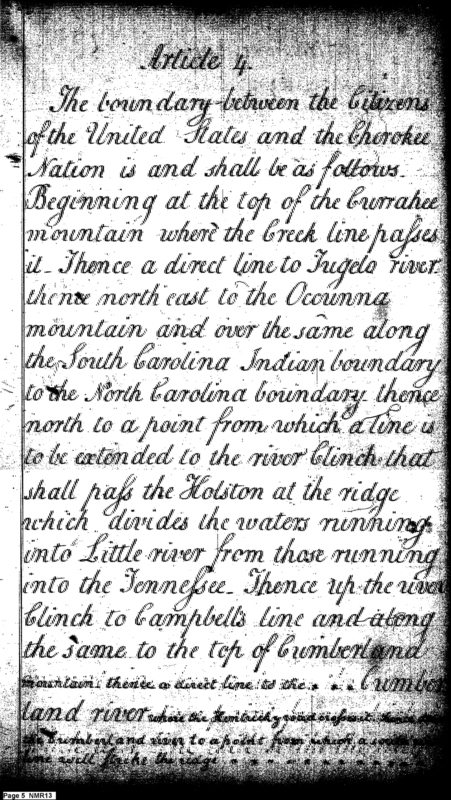 Article 4.
The boundary between the Citizens
of the United States and the Cherokee
Nation is and shall be as follows.
Beginning at the top of the Currahee
mountain where the Creek line passes
it. Thence a direct line to Tugelo river.
thence north east to the Ocounna
mountain and over the same along
the South Carolina Indian boundary
to the North Carolina boundary. thence
north to a point from which a line is
to be extended to the river Clinch that
shall pass the Holston at the ridge
which divides the waters running
into Little river from those running
into the Tennessee. Thence up the river
Clinch to Campbell's line and along
the same to the top of Cumberland
mountain. thence a direct line to the . . . Cumber
land river where the Kentucky road crosses it. thence down
the Cumberland river to a point from which a south west
line will strike the ridge
Page 5 NMR13